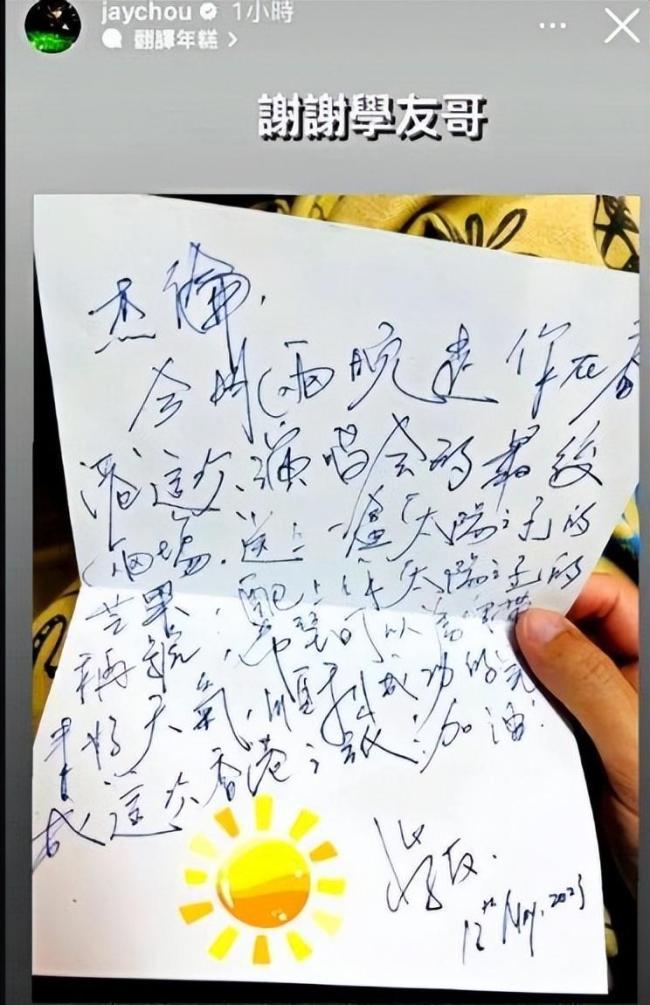 jaychou 1小時
翻譯年糕 >
謝謝學友哥
杰倫,
今明兩晚是你在香
港這次演唱会的最後
兩場,送上一盒「太陽之子」的
芒果,配上你太陽之子的
稱號,希望可以為你帶
來好天氣,順利成功的完
成這次香港之旅!加油!
学友.
12th May, 2023